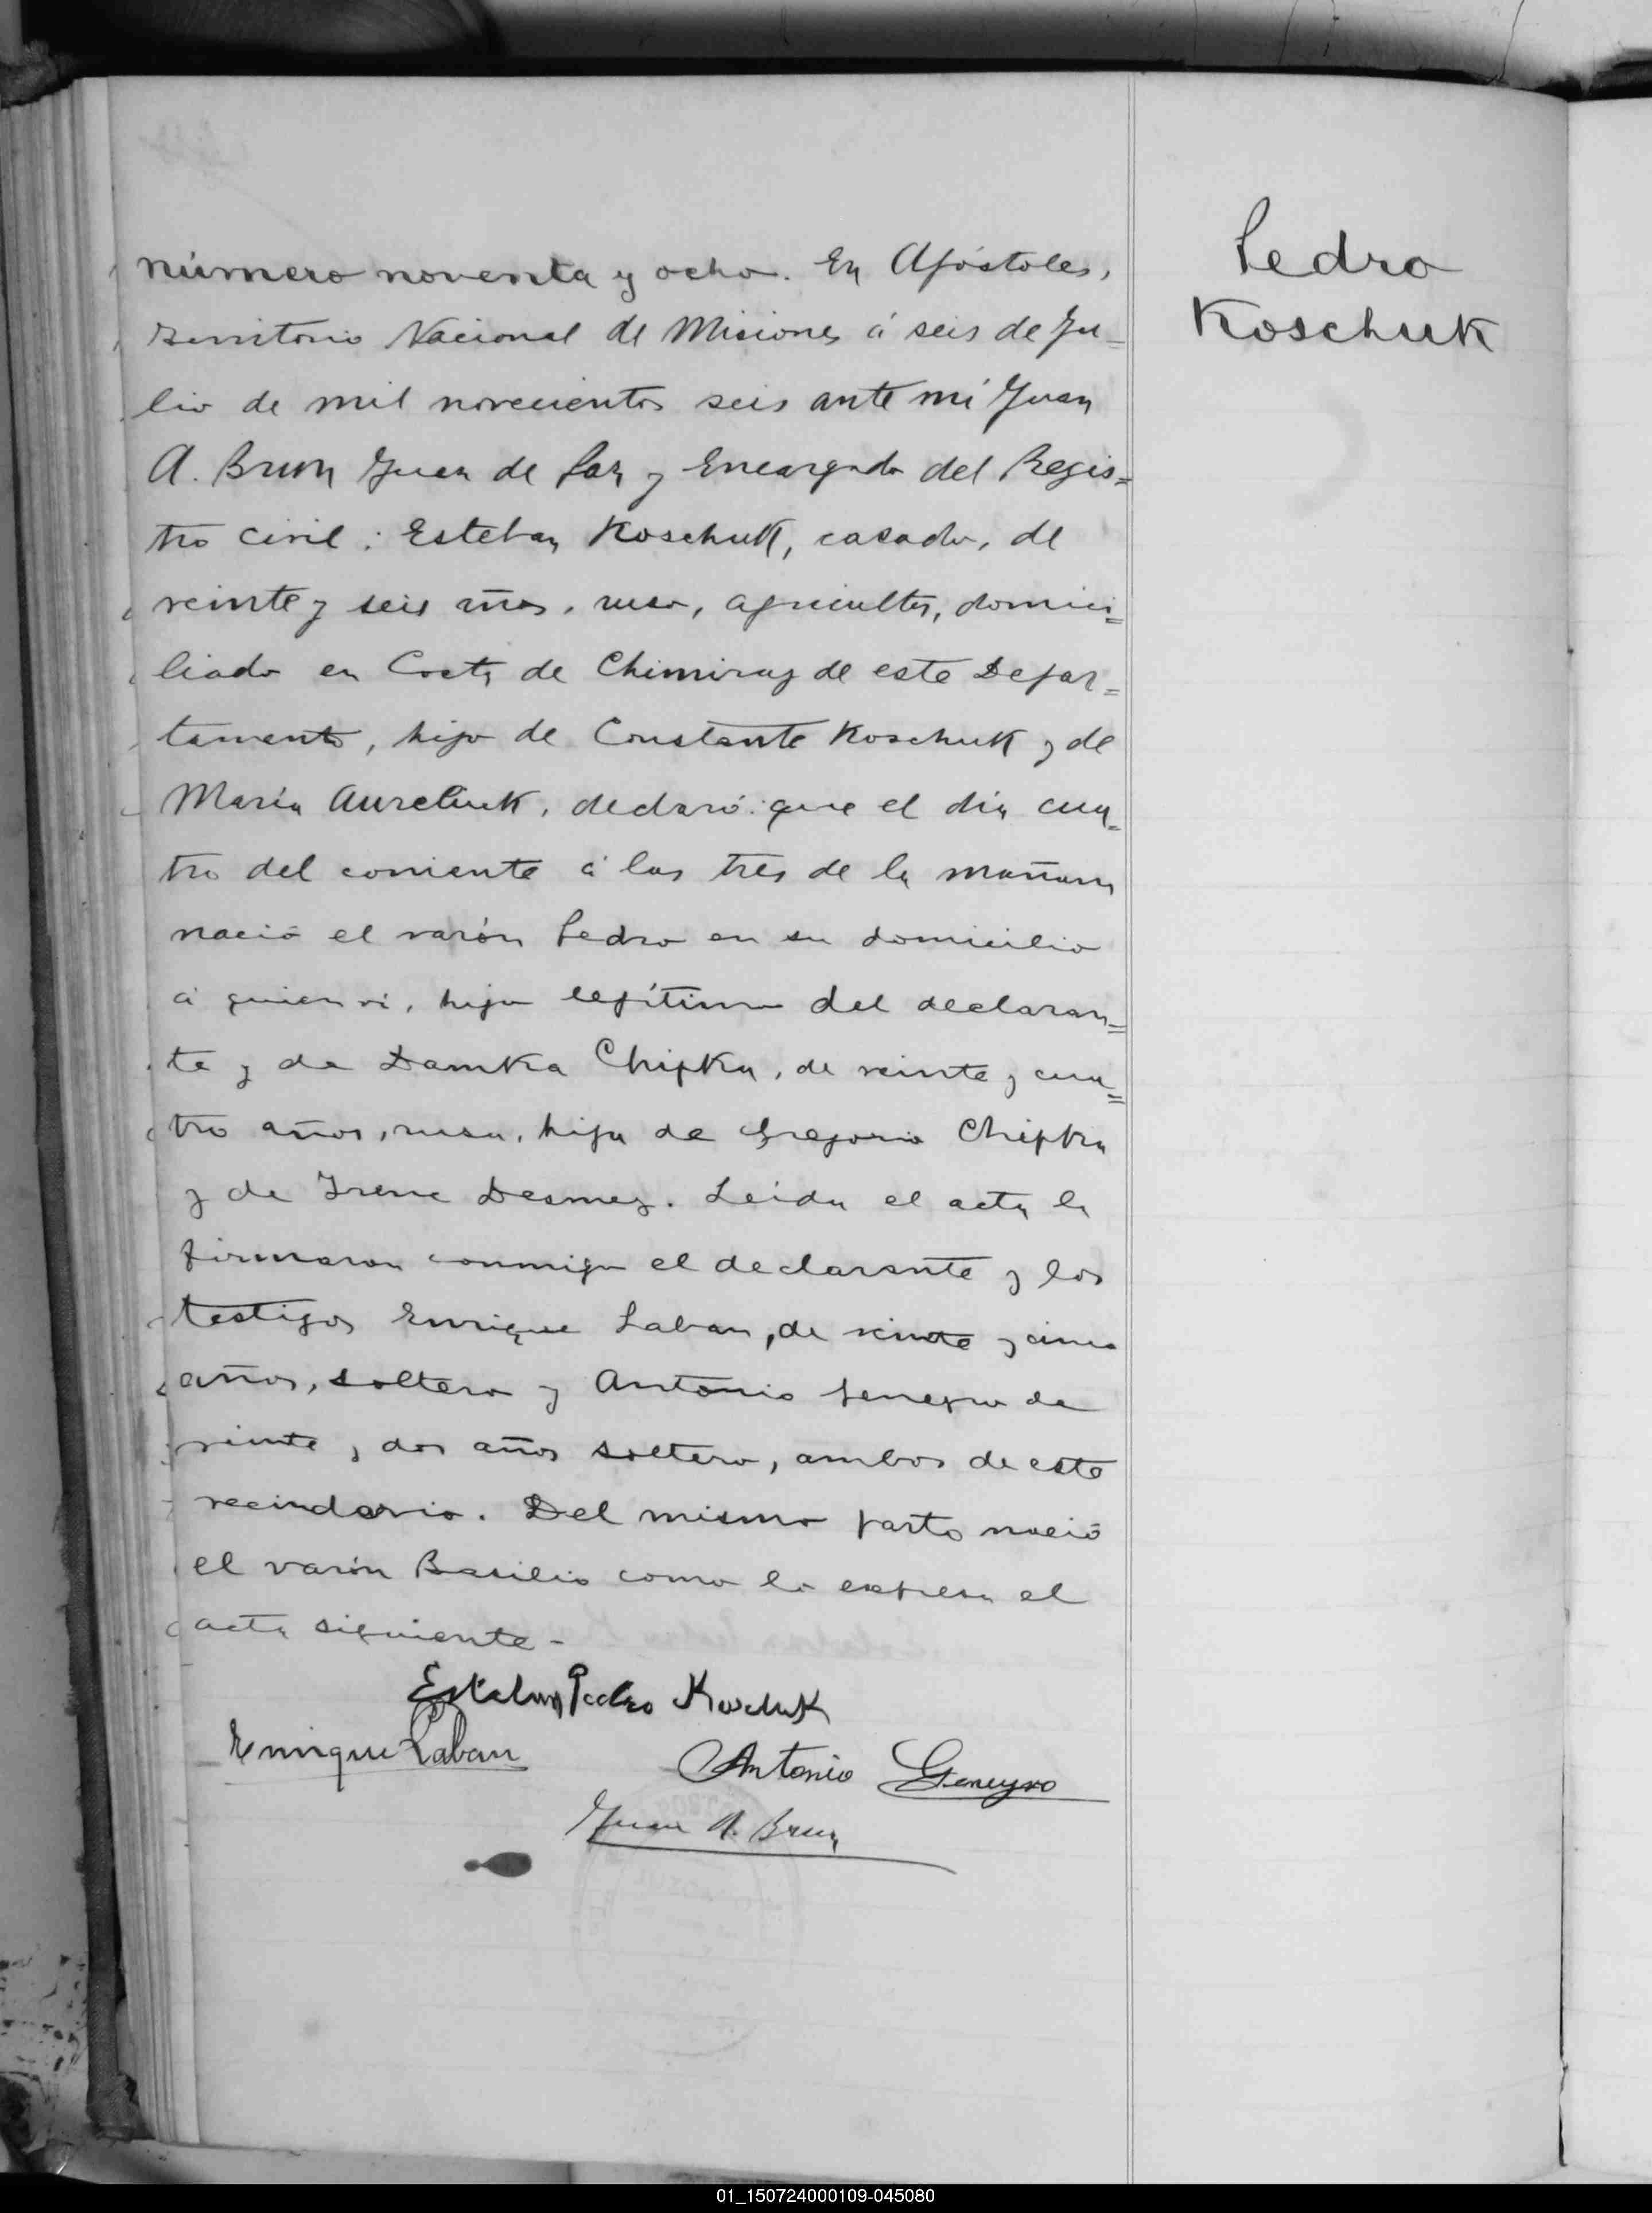 Pedro
Koschuk
número noventa y ocho. En Apóstoles,
Territorio Nacional de Misiones á seis de Ju-
lio de mil novecientos seis ante mí Juan
A. Brun Juez de Paz y Encargado del Regis=
tro Civil: Esteban Koschuk, casado, de
veinte y seis años, ruso, agricultor, domici=
liado en Costa de Chimiray de este Depar=
tamento, hijo de Constante Koschuk y de
María Aureliuk, declaró: que el día cua=
tro del corriente á las tres de la mañana
nació el varón Pedro en su domicilio
á quien vi, hijo legítimo del declaran=
te y de Damka Chipka, de veinte y cua=
tro años, rusa, hija de Gregorio Chipka
y de Irene Desmez. Leida el acta la
firmaron conmigo el declarante y los
testigos Enrique Laban, de veinte y cinco
años, soltero y Antonio Geneyro de
veinte y dos años soltero, ambos de este
vecindario. Del mismo parto nació
el varón Basilio como lo expresa el
acta siguiente-
Esteban Pedro Koschuk
Enrique Laban
Antonio Geneyro
Juan A. Brun
01_150724000109-045080